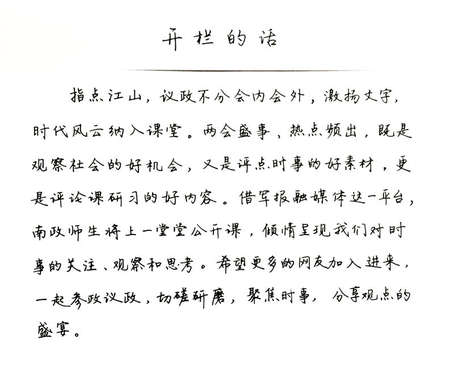 开栏的话
指点江山，议政不分会内会外，激扬文字，
时代风云纳入课堂。两会盛事、热点频出，既是
观察社会的好机会，又是评点时事的好素材，更
是评论课研习的好内容。借写报融媒体这一平台，
南政师生将上一堂堂公开课，倾情呈现我们对时
事的关注、观察和思考。希望更多的网友加入进来，
一起参政议政，切磋研磨，聚焦时事，分享观点的
盛宴。